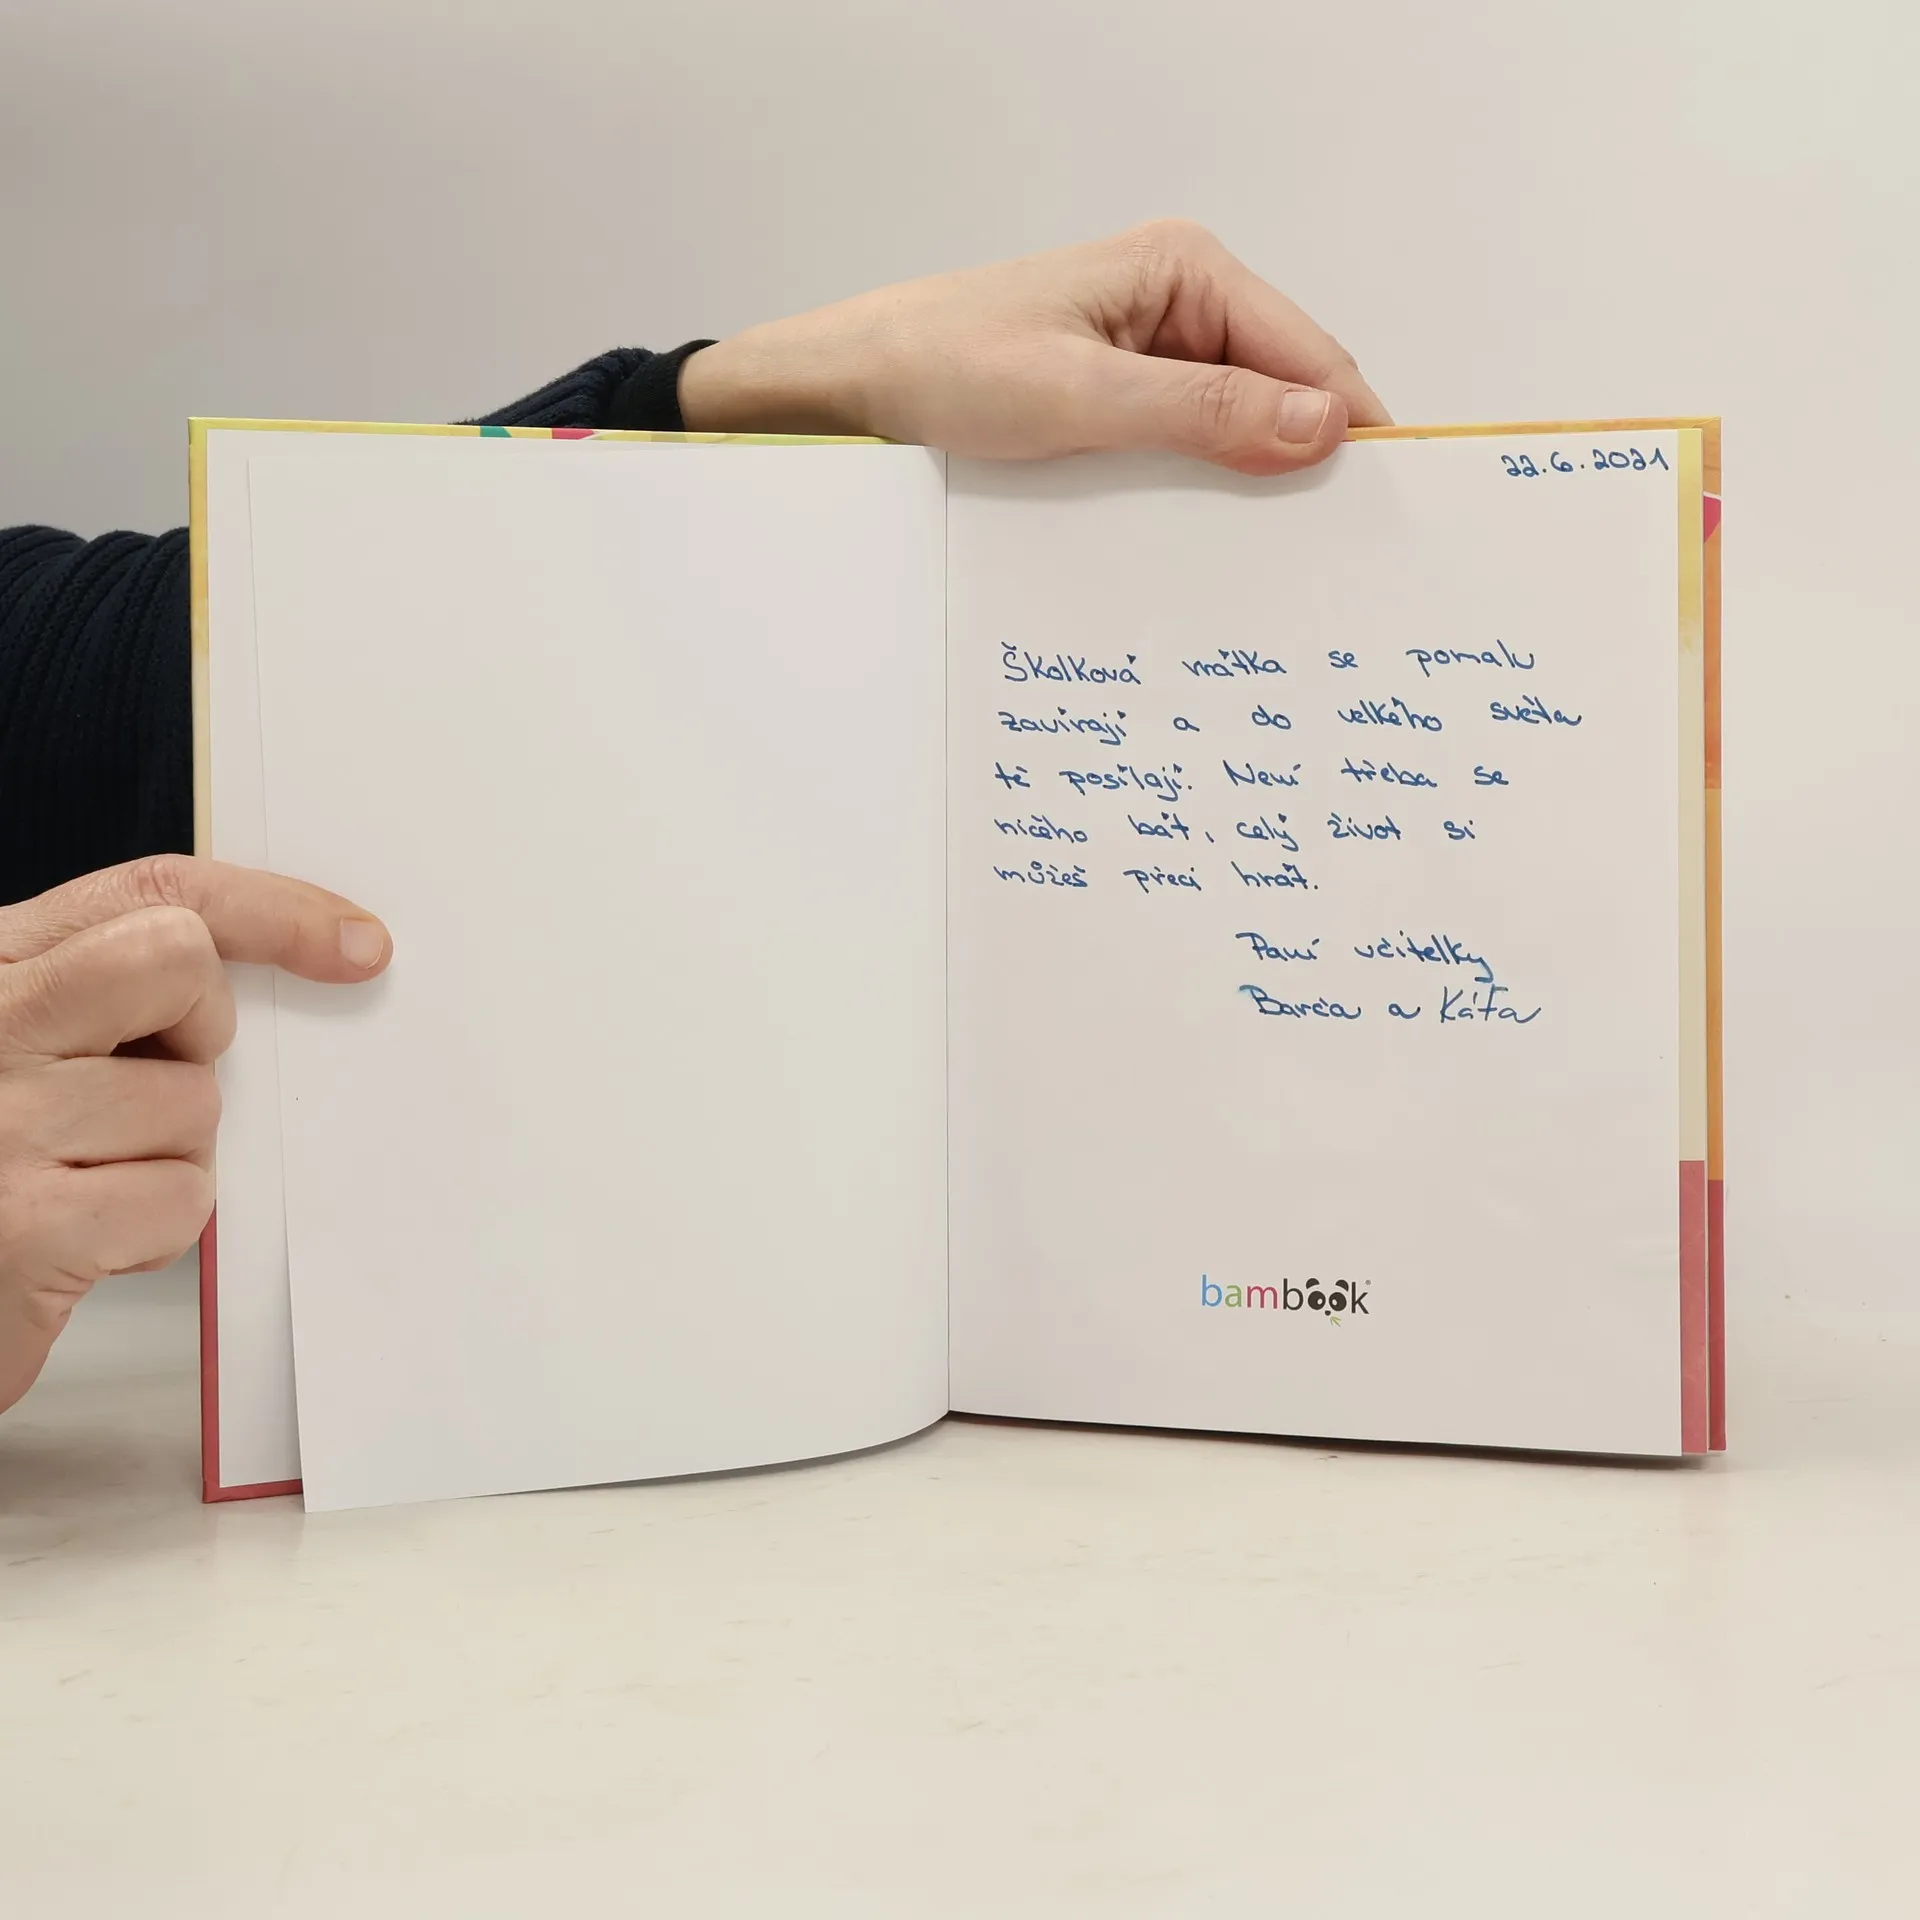 22.6.2021
Školková vrátka se pomalu
zavírají a do velkého světa
tě posílají. Není třeba se
ničeho bát, celý život si
můžeš přeci hrát.
Paní učitelky
Barča a Káťa
bambook®